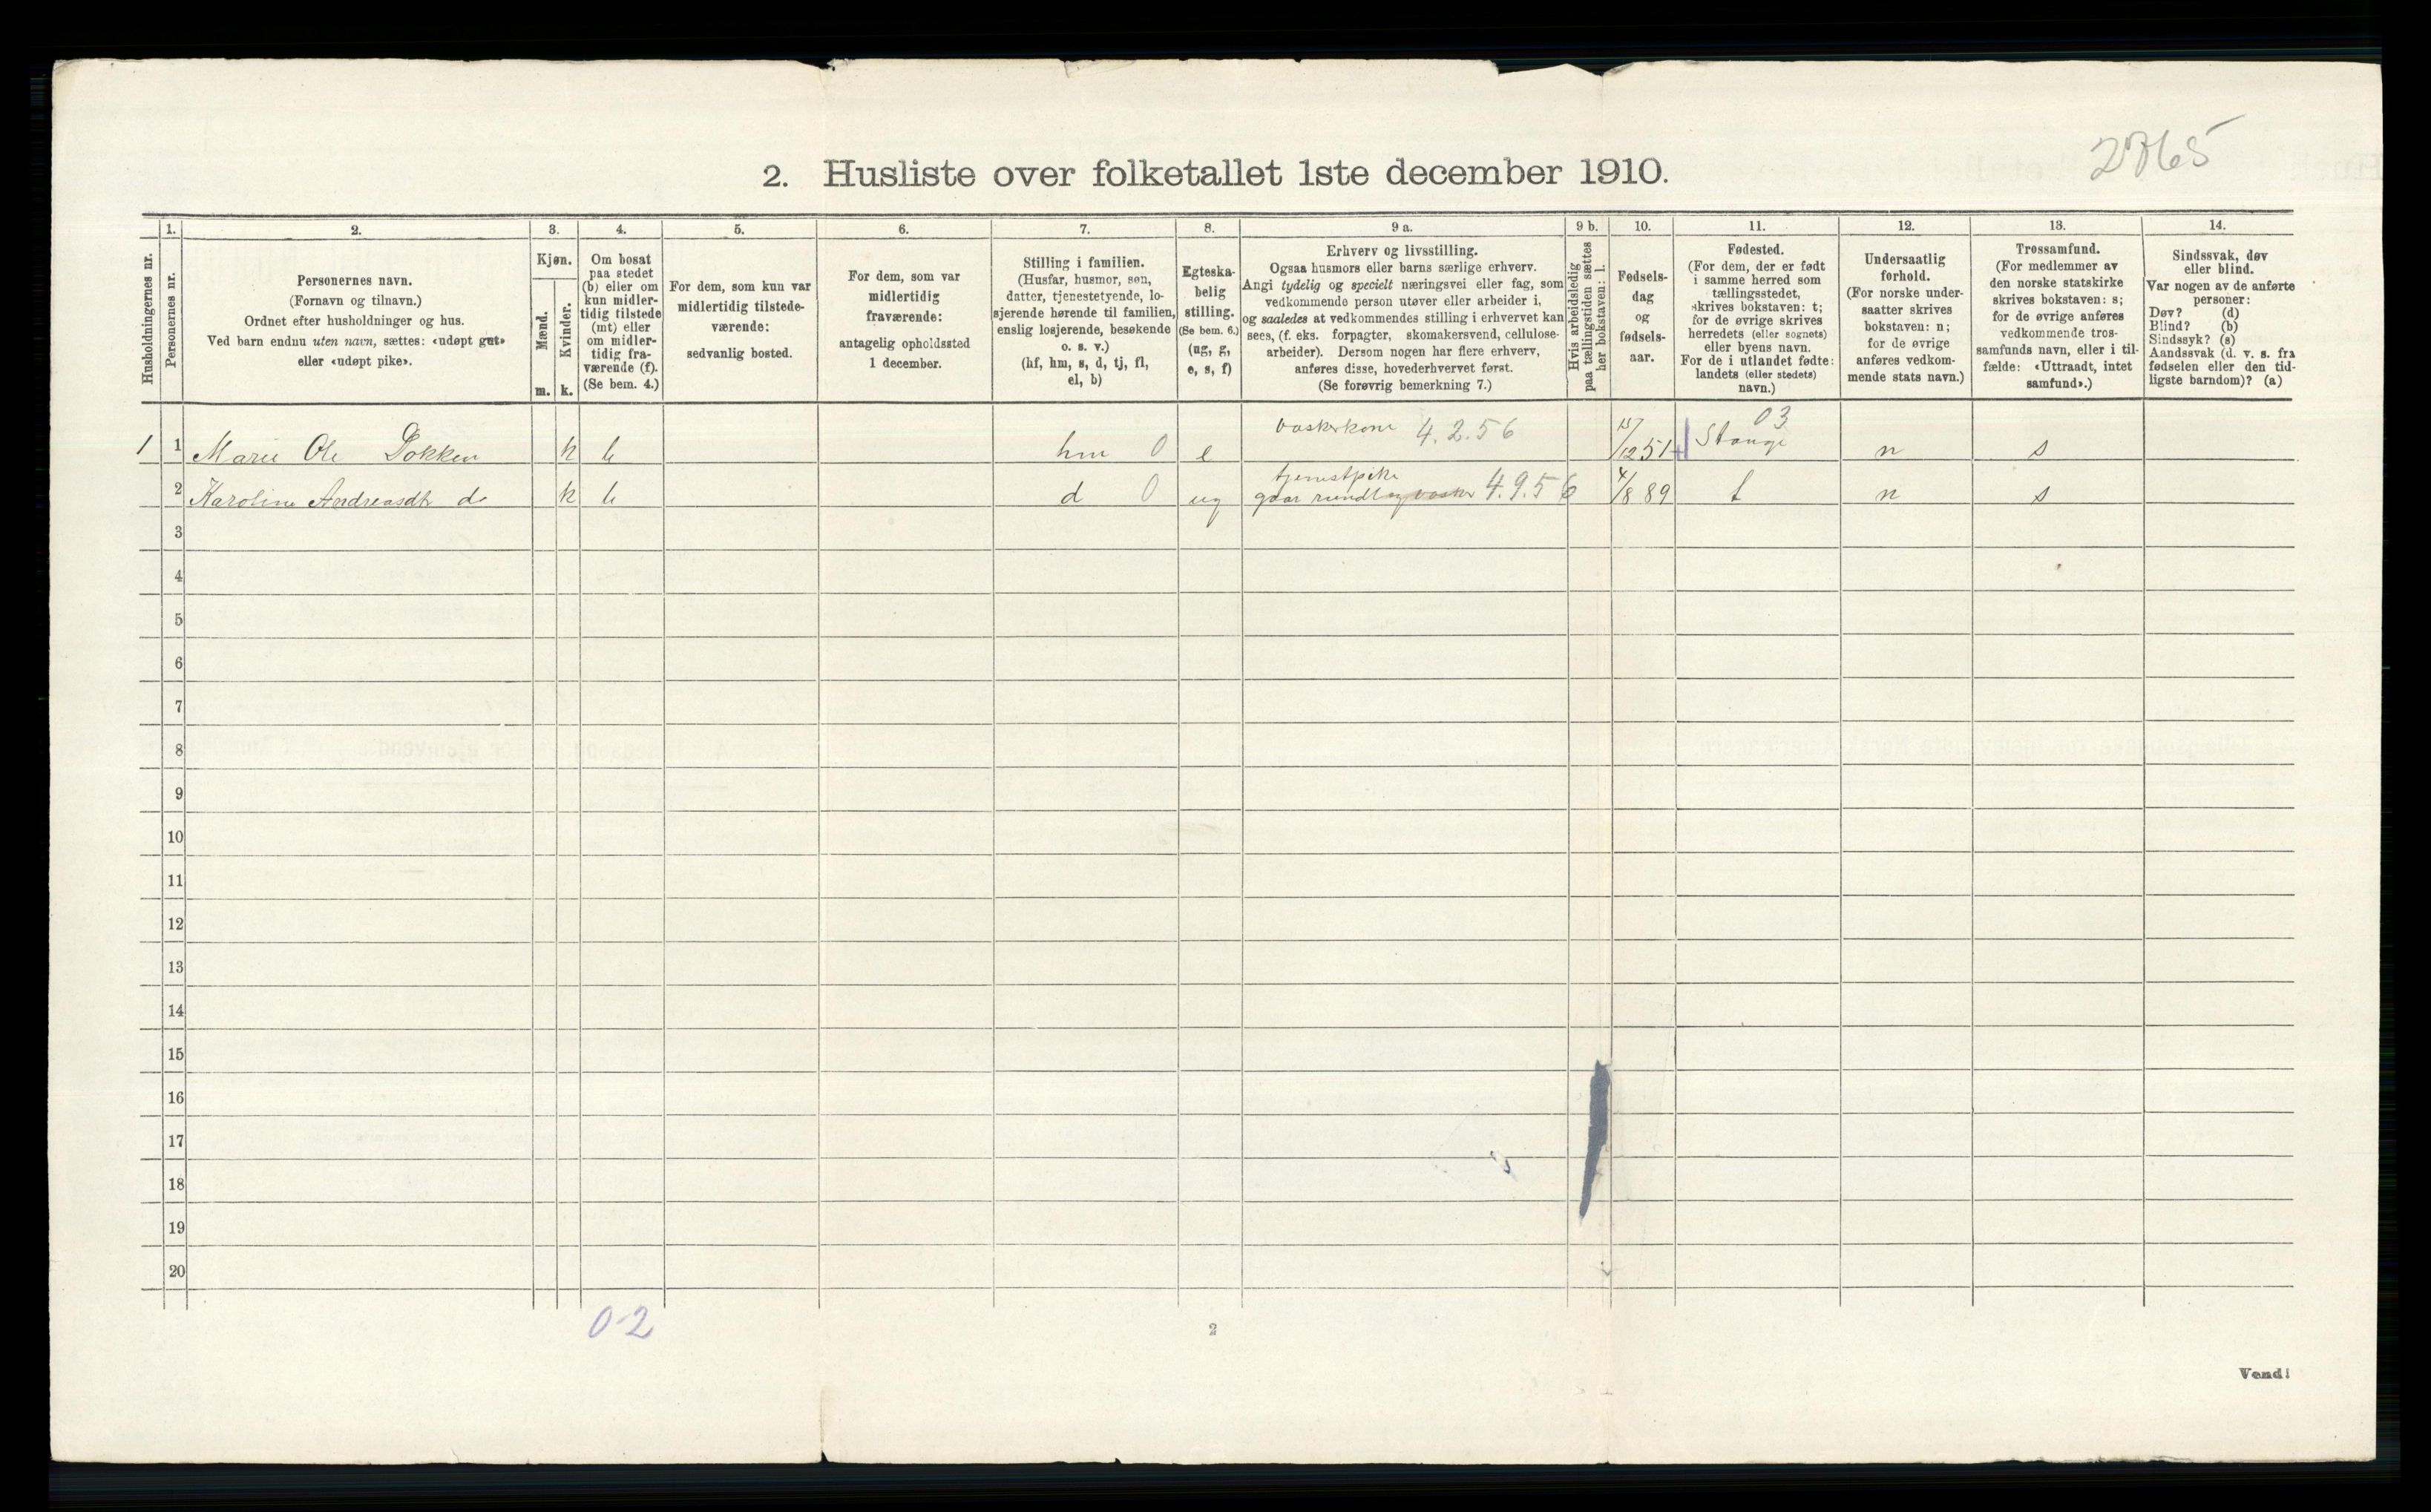 2765
2. Husliste over folketallet 1ste december 1910.
Husholdningernes nr.
1.
Personernes nr.
2.
Personernes navn.
(Fornavn og tilnavn.)
Ordnet efter husholdninger og hus.
Ved barn endnu uten navn, sættes: «udøpt gut»
eller «udøpt pike».
3.
Kjøn.
Mænd.
Kvinder.
m. k.
4.
Om bosat
paa stedet
(b) eller om
kun midler-
tidig tilstede
(mt) eller
om midler-
tidig fra-
værende (f).
(Se bem. 4.)
5.
For dem, som kun var
midlertidig tilstede-
værende:
sedvanlig bosted.
6.
For dem, som var
midlertidig
fraværende:
antagelig opholdssted
1 december.
7.
Stilling i familien.
(Husfar, husmor, søn,
datter, tjenestetyende, lo-
sjerende hørende til familien,
enslig losjerende, besøkende
o. s. v.)
(hf, hm, s, d, tj, fl,
el, b)
8.
Egteska-
belig
stilling.
(Se bem. 6.)
(ug, g,
e, s, f)
9 a.
Erhverv og livsstilling.
Ogsaa husmors eller barns særlige erhverv.
Angi tydelig og specielt næringsvei eller fag, som
vedkommende person utøver eller arbeider i,
og saaledes at vedkommendes stilling i erhvervet kan
sees, (f. eks. forpagter, skomakersvend, cellulose-
arbeider). Dersom nogen har flere erhverv,
anføres disse, hovederhvervet først.
(Se forøvrig bemerkning 7.)
9 b.
Hvis arbeidsledig
paa tællingstiden sættes
her bokstaven: l.
10.
Fødsels-
dag
og
fødsels-
aar.
11.
Fødested.
(For dem, der er født
i samme herred som
tællingsstedet,
skrives bokstaven: t;
for de øvrige skrives
herredets (eller sognets)
eller byens navn.
For de i utlandet fødte:
landets (eller stedets)
navn.)
12.
Undersaatlig
forhold.
(For norske under-
saatter skrives
bokstaven: n;
for de øvrige
anføres vedkom-
mende stats navn.)
13.
Trossamfund.
(For medlemmer av
den norske statskirke
skrives bokstaven: s;
for de øvrige anføres
vedkommende tros-
samfunds navn, eller i til-
fælde: «Uttraadt, intet
samfund».)
14.
Sindssvak, døv
eller blind.
Var nogen av de anførte
personer:
Døv? (d)
Blind? (b)
Sindssyk? (s)
Aandssvak (d. v. s. fra
fødselen eller den tid-
ligste barndom)? (a)
1 1 Marie Ols Dokken k b hm 0 e vaskerkone 4.2.56 15/12 51 Stange 03 n s
2 Karoline Andreasdtr do k b d 0 ug tjenestpike
gaar rundt og vasker 4.9.56 4/8 89 t n s
3
4
5
6
7
8
9
10
11
12
13
14
15
16
17
18
19
20
0-2
2
Vend!